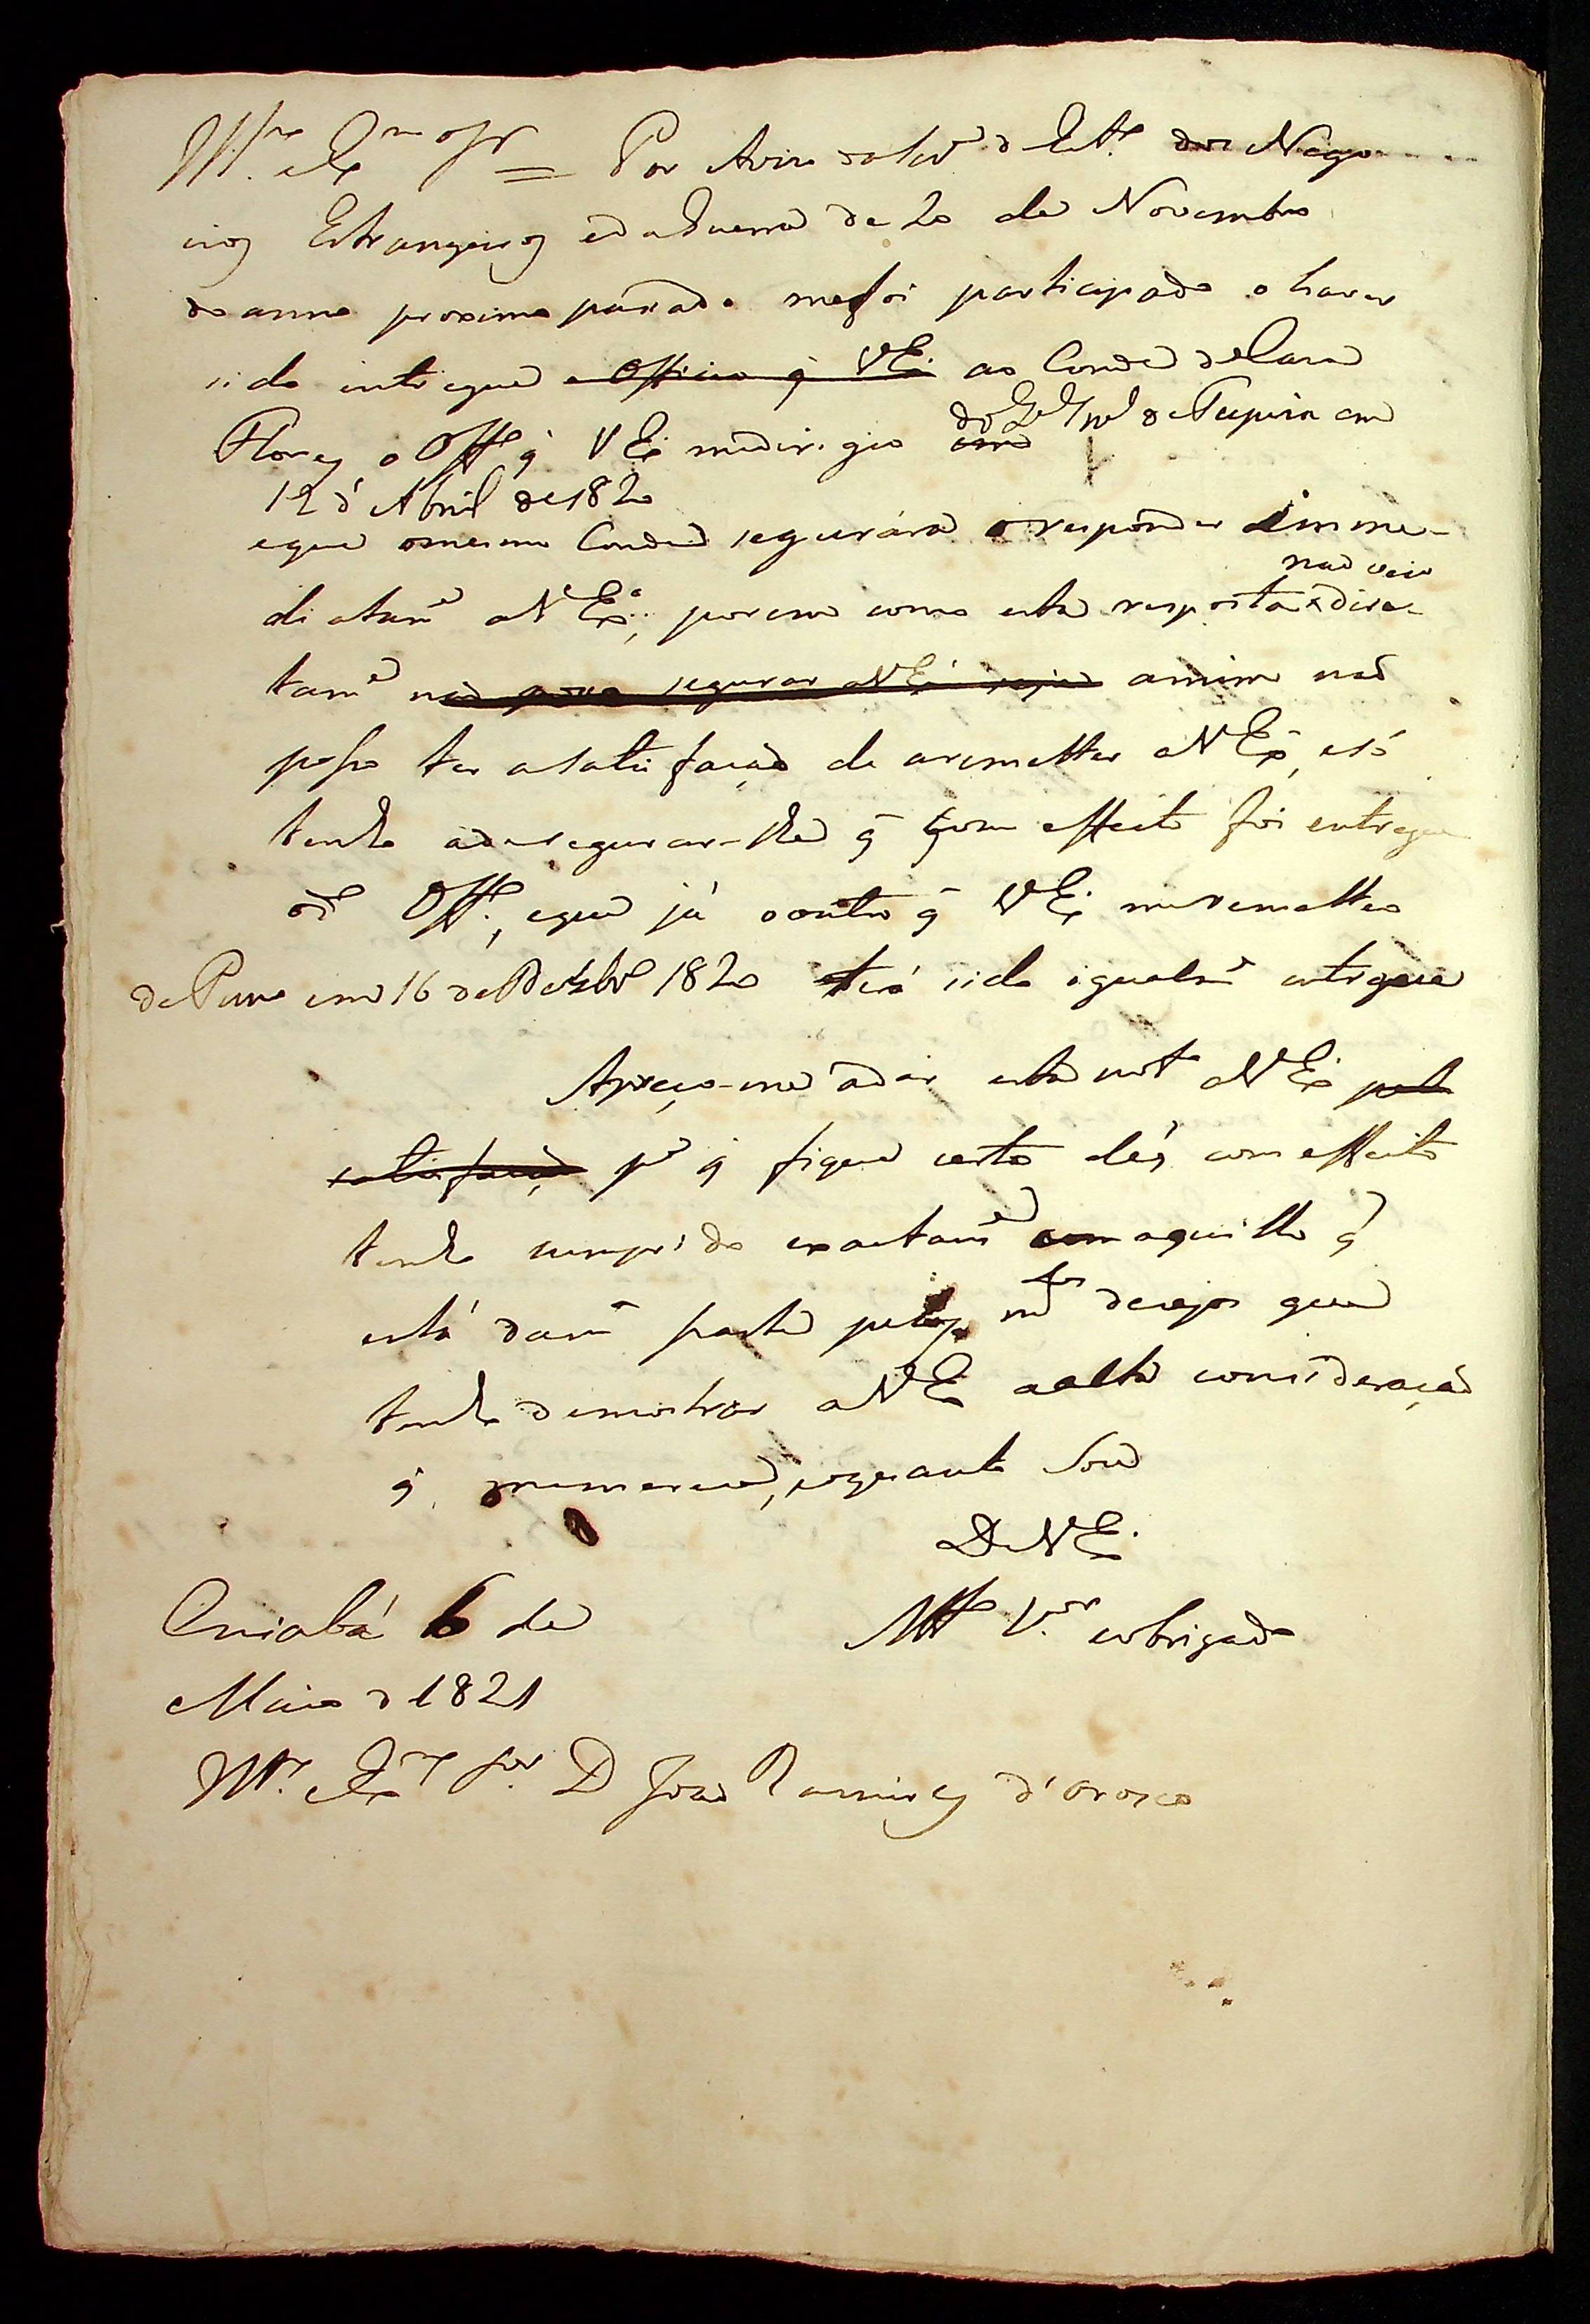 Ill.mo e Ex.mo Sr = Por Aviso da Secr.a d'Est.o dos Nego-
cios Estrangeiros e da Guerra de 20 de Novembro
do anno proximo passado me foi participado o haver
sido entregue o Officio q̃ V Ex.a ao Conde de Casa
Flores, o Off.o q̃ V Ex.a me dirigio em do Q.el G.nal de Tupisa em
12 d'Abril de 1820
e que o mesmo Conde segurára o responder imme-
diatam.e a V Ex.a; porem como esta resposta não veio direc-
tam.e não para segurar a V Ex.a seja a mim não
posso ter a satisfação de a remetter a V Ex.a, e só
tenho a assegurar-lhe q̃ com effeito foi entregue
o d.o Off.o, e que já o outro q̃ V Ex.a me remetteo
de Puno em 16 de 1820 terá sido igualm.e entregue
Apreço-me a dar esta not.a a V Ex.a pela
satisfação p.a q̃ fique certo de q̃ com effeito
tenho cumprido exactam.e com aquillo q̃
está da m.a parte pelos m.tos desejos que
tenho demostrar a V Ex.a a alta consideração
q̃ me merece, e com q̃ Sou
De V Ex.a
Cuiabá 6 de
M.to V.or e obrigado
Maio d 1821
Ill.mo e Ex.mo Sr. D João Ramires d'Orosco